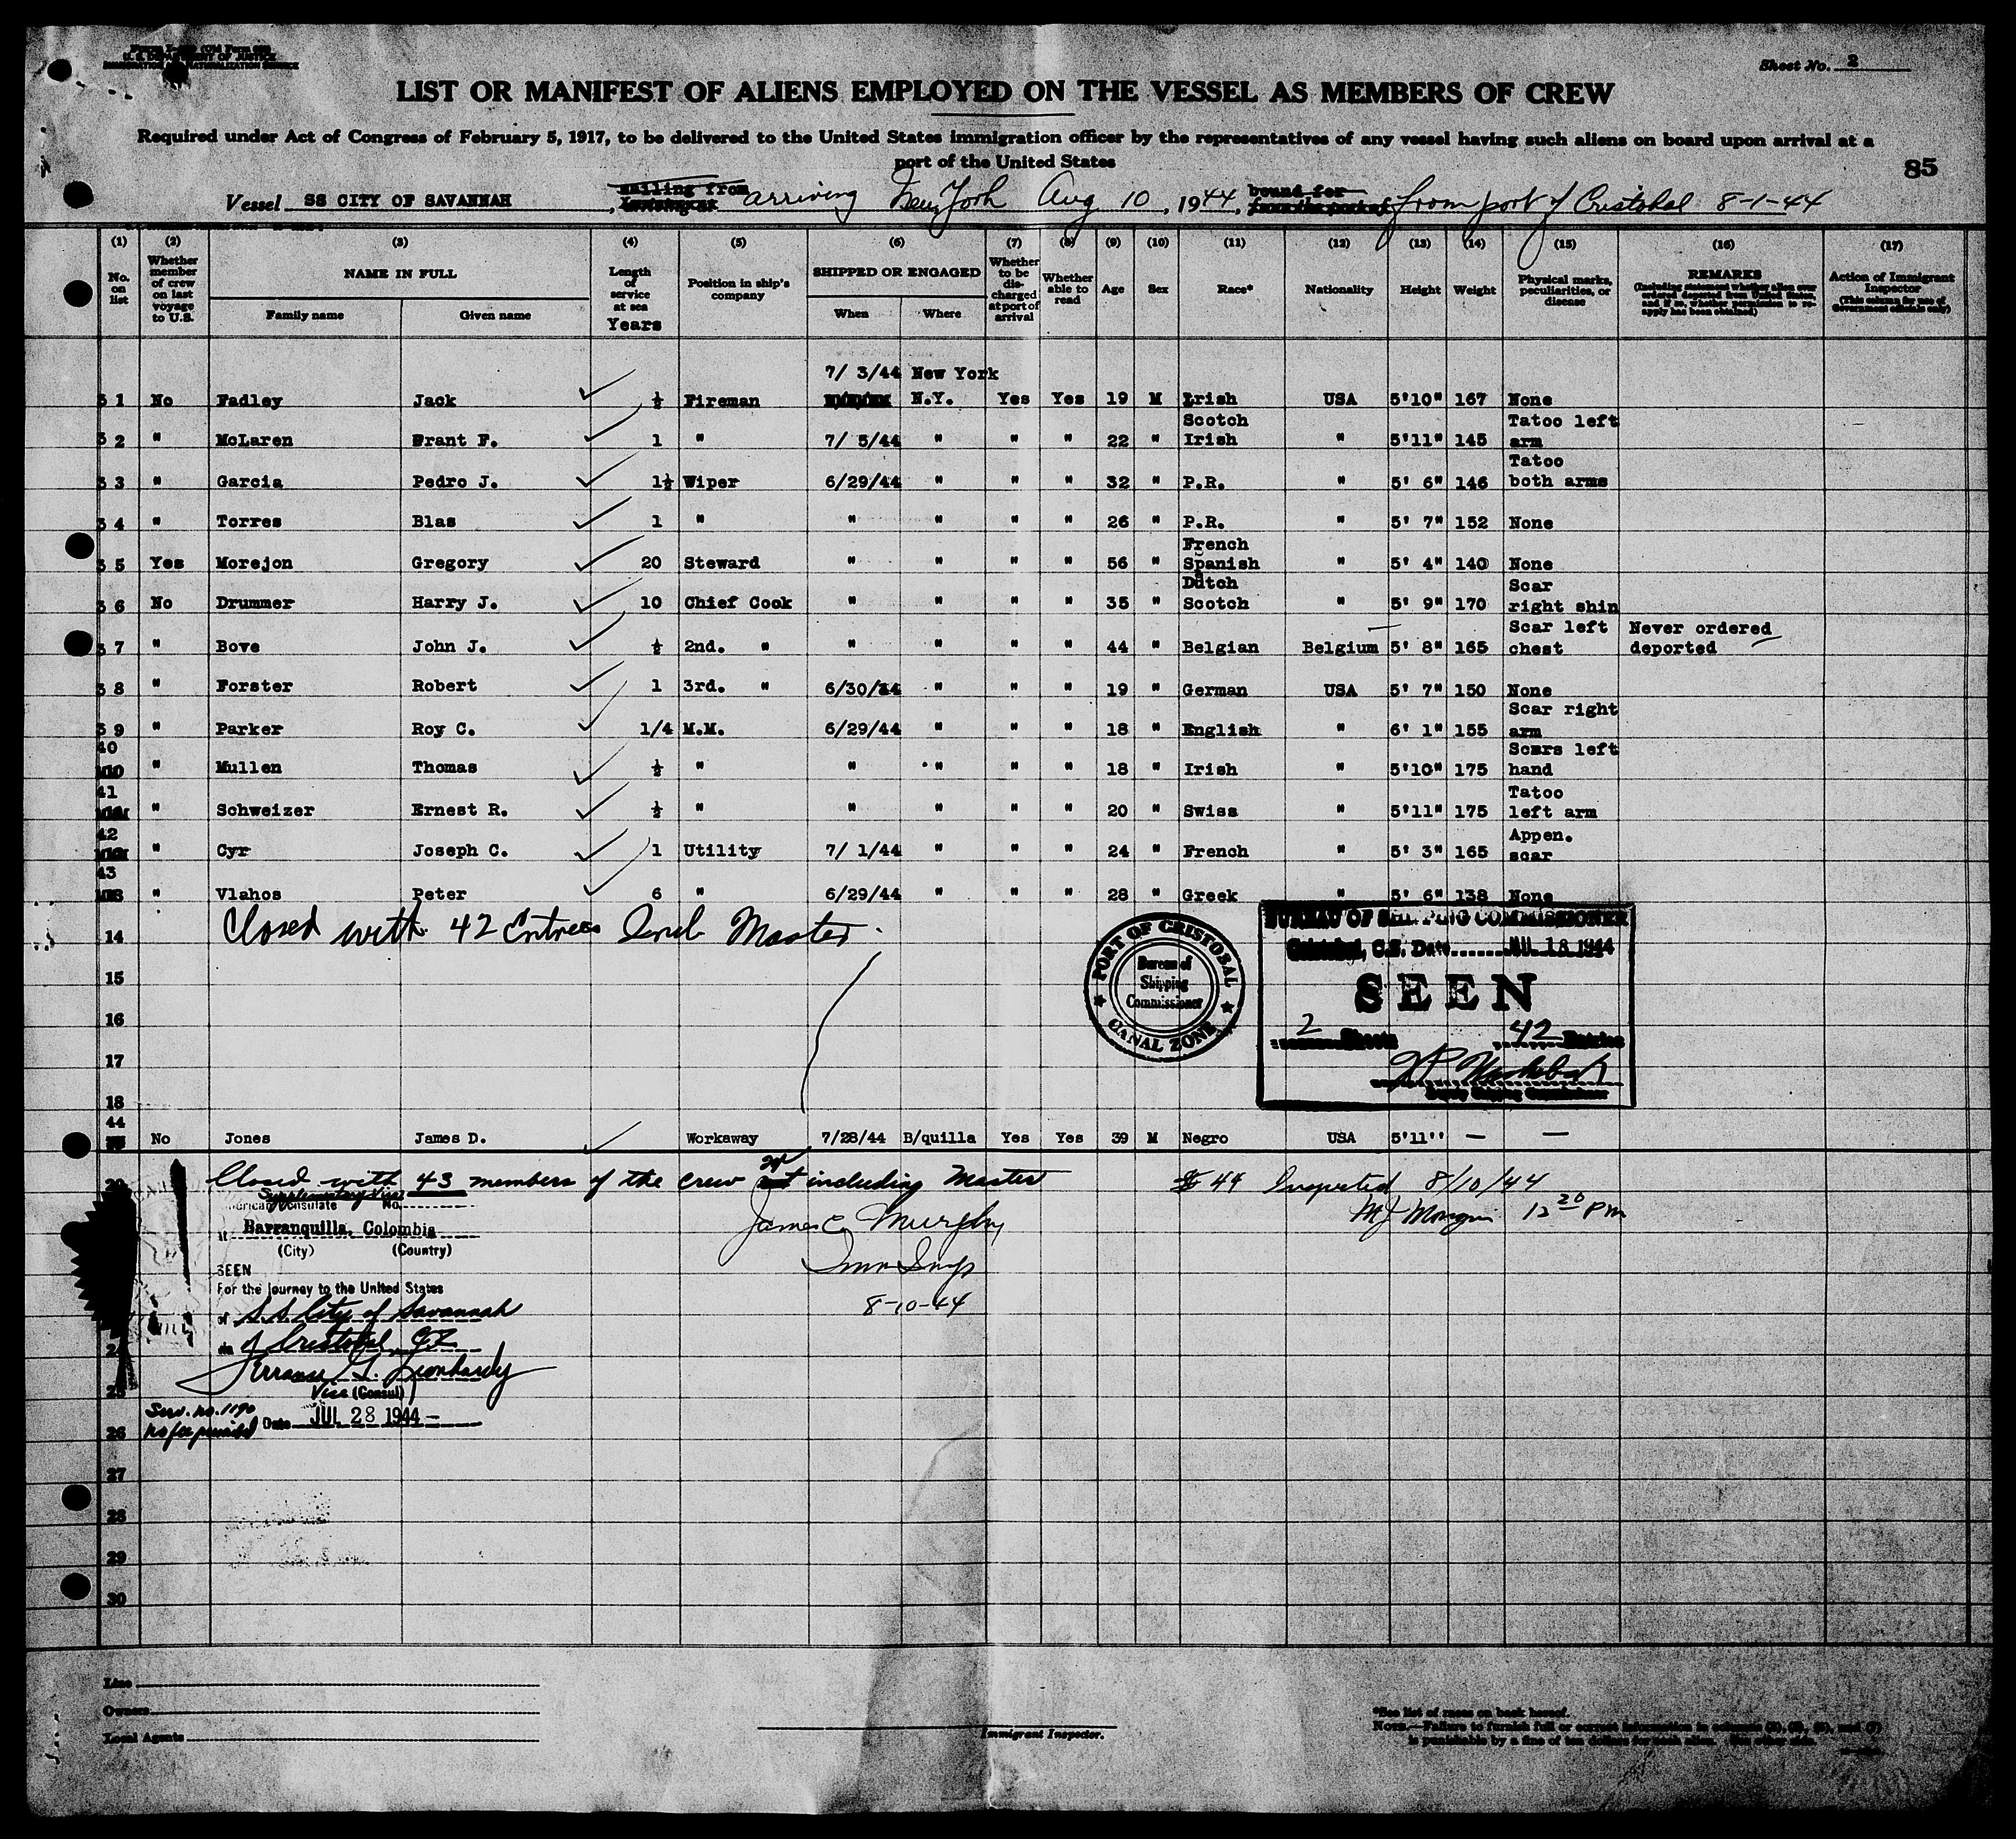 U. S. DEPARTMENT OF JUSTICE
IMMIGRATION AND NATURALIZATION SERVICE
Sheet No. 2
LIST OR MANIFEST OF ALIENS EMPLOYED ON THE VESSEL AS MEMBERS OF CREW
Required under Act of Congress of February 5, 1917, to be delivered to the United States immigration officer by the representatives of any vessel having such aliens on board upon arrival at a
port of the United States
85
Vessel SS CITY OF SAVANNAH, sailing from arriving New York Aug 10, 1944, bound for from port of Cristobal 8-1-44
(1) (2) (3) (4) (5) (6) (7) (8) (9) (10) (11) (12) (13) (14) (15) (16) (17)
No. on list
Whether member of crew on last voyage to U.S.
NAME IN FULL
Family name Given name
Length of service at sea
Years
Position in ship's company
SHIPPED OR ENGAGED
When Where
Whether to be discharged at port of arrival
Whether able to read
Age
Sex
Race*
Nationality
Height
Weight
Physical marks, peculiarities, or disease
REMARKS
(Including statement whether alien ever ordered deported from United States, and if so, whether permission to reapply has been obtained)
Action of Immigrant Inspector
(This column for use of Government officials only)
7/ 3/44 New York
3 1 No Fadley Jack ½ Fireman N.Y. Yes Yes 19 M Irish USA 5'10" 167 None
Scotch Tatoo left
3 2 " McLaren Grant F. 1 " 7/ 5/44 " " " 22 " Irish " 5'11" 145 arm
Tatoo
3 3 " Garcia Pedro J. 1½ Wiper 6/29/44 " " " 32 " P.R. " 5' 6" 146 both arms
3 4 " Torres Blas 1 " " " " " 26 " P.R. " 5' 7" 152 None
French
3 5 Yes Morejon Gregory 20 Steward " " " " 56 " Spanish " 5' 4" 140 None
Dutch Scar
3 6 No Drummer Harry J. 10 Chief Cook " " " " 35 " Scotch " 5' 9" 170 right shin
Scar left Never ordered
3 7 " Bove John J. ½ 2nd. " " " " " 44 " Belgian Belgium 5' 8" 165 chest deported
3 8 " Forster Robert 1 3rd. " 6/30/44 " " " 19 " German USA 5' 7" 150 None
Scar right
3 9 " Parker Roy C. 1/4 M.M. 6/29/44 " " " 18 " English " 6' 1" 155 arm
40 Scars left
" Mullen Thomas ½ " " " " " 18 " Irish " 5'10" 175 hand
41 Tatoo
" Schweizer Ernest R. ½ " " " " " 20 " Swiss " 5'11" 175 left arm
42 Appen.
" Cyr Joseph C. 1 Utility 7/ 1/44 " " " 24 " French " 5' 3" 165 scar
43
" Vlahos Peter 6 " 6/29/44 " " " 28 " Greek " 5' 6" 138 None
Closed with 42 Entries Incl. Master.
PORT OF CRISTOBAL
Bureau of
Shipping
Commissioner
CANAL ZONE
BUREAU OF SHIPPING COMMISSIONER
Cristobal, C.Z. Date JUL 18 1944
SEEN
2 Sheets 42 Entries
Deputy Shipping Commissioner
14
15
16
17
18
44
No Jones James D. Workaway 7/28/44 B/quilla Yes Yes 39 M Negro USA 5'11'' — —
20 Closed with 43 members of the crew not including Master
44 Inspected 8/10/44
MJ Morgan 12 20 PM
James C. Murphy
Imm Insp
8-10-44
Supplementary Visa
American Consulate No.
at Barranquilla, Colombia
(City) (Country)
SEEN
For the journey to the United States
of S.S. City of Savannah
via Cristobal CZ
Terrance G. Leonhardy
Vice (Consul)
Serv. No. 1190
No fee prescribed Date JUL 28 1944
25
26
27
28
29
30
Line
Owners
Local Agents
Immigrant Inspector.
*See list of races on back hereof.
NOTE.—Failure to furnish full or correct information in columns (3), (5), (6), and (7)
is punishable by a fine of ten dollars for each alien. See other side.